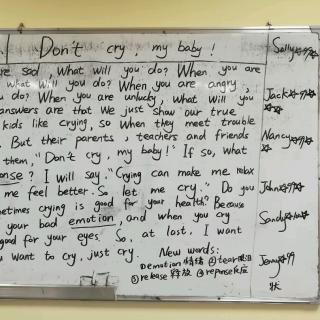 Don't cry, my baby!
are sad. What will you do? When you are
what will you do? When you are angry,
you do? When you are unlucky, what will you
answers are that We just show our true
kids like crying, so when they meet trouble
But their parents, teachers and friends
them, "Don't cry, my baby!" If so, what
ponse? I will say, "Crying can make me relax
me feel better. So let me cry." Do you
metimes crying is good for your health? Because
your bad emotion, and when you cry
good for your eyes. So, at last, I want
you want to cry, just cry.
New words:
①emotion 情绪 ②tear 眼泪
③release 释放 ④reponse 反应
Sally
Jack
Nancy
John
Sandy
Jenny